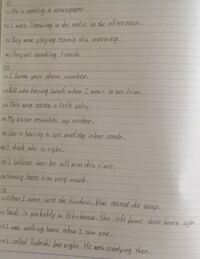 (1)
(1) He is reading a newspaper.
(2) I was listening to the radio in the afternoon.
(3) They were playing tennis this morning.
(4) They are speaking French.
(2)
(1) I know your phone number.
(2) Bill was having lunch when I went to see him.
(3) This soup tastes a little salty.
(4) My sister resembles my mother.
She is having a cat and dog in her
I think she is right.
I believe that he will win this time.
Nancy loves him very much.
(3)
(1) When I went into the kitchen, Ken tasted the soup.
is probably in Yokohama. She left home three hours ago.
(3) I was walking home when I saw you.
I called Tadashi last night. He was studying then.